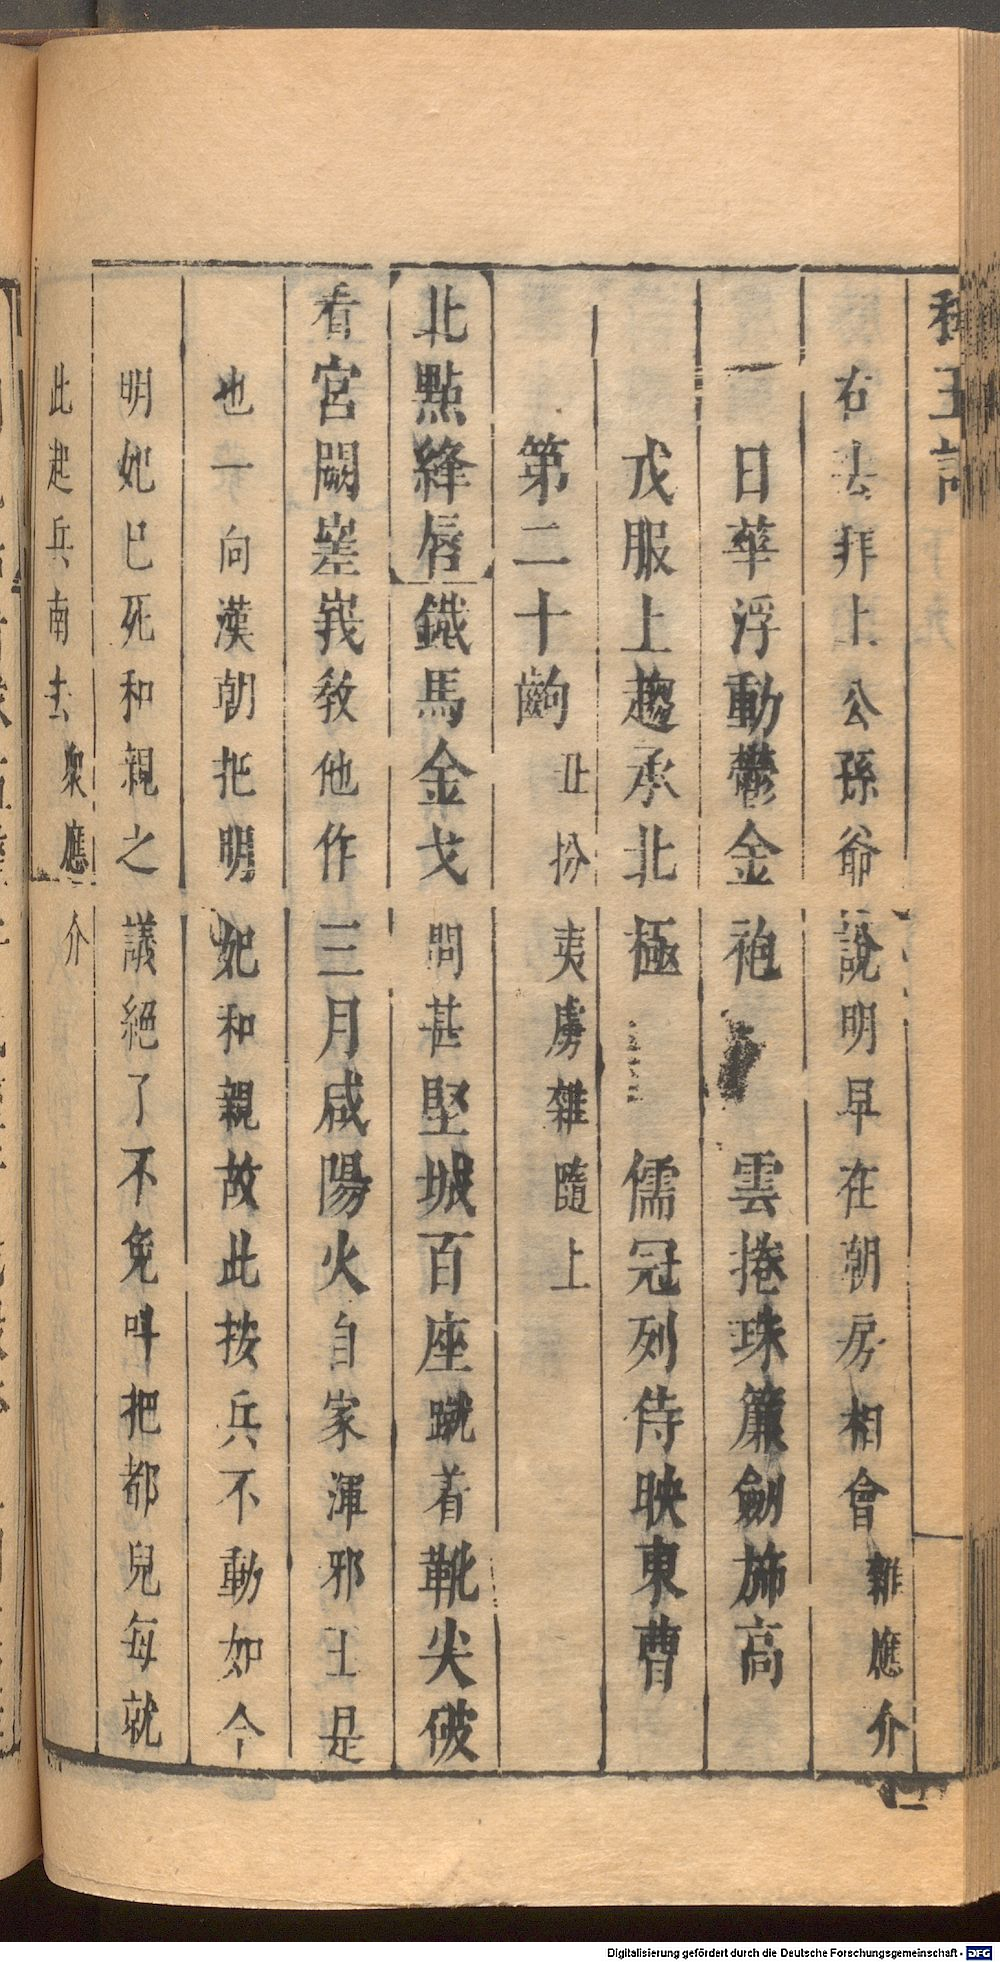 右去拜上公孫爺說明早在朝房相會雜應介
一日華浮動鬱金袍 雲捲珠簾劍旆高
戎服上趨承北極 儒冠列侍映東曹
第二十齣 丑扮夷虜雜隨上
北點絳唇鐵馬金戈問甚堅城百座蹴着靴尖破
看宮闕嵳峩教他作三月咸陽火自家渾邪王是
也一向漢朝把明妃和親故此按兵不動如今
明妃已死和親之議絕了不免呌把都兒每就
此起兵南去衆應介
Digitalisierung gefördert durch die Deutsche Forschungsgemeinschaft - DFG